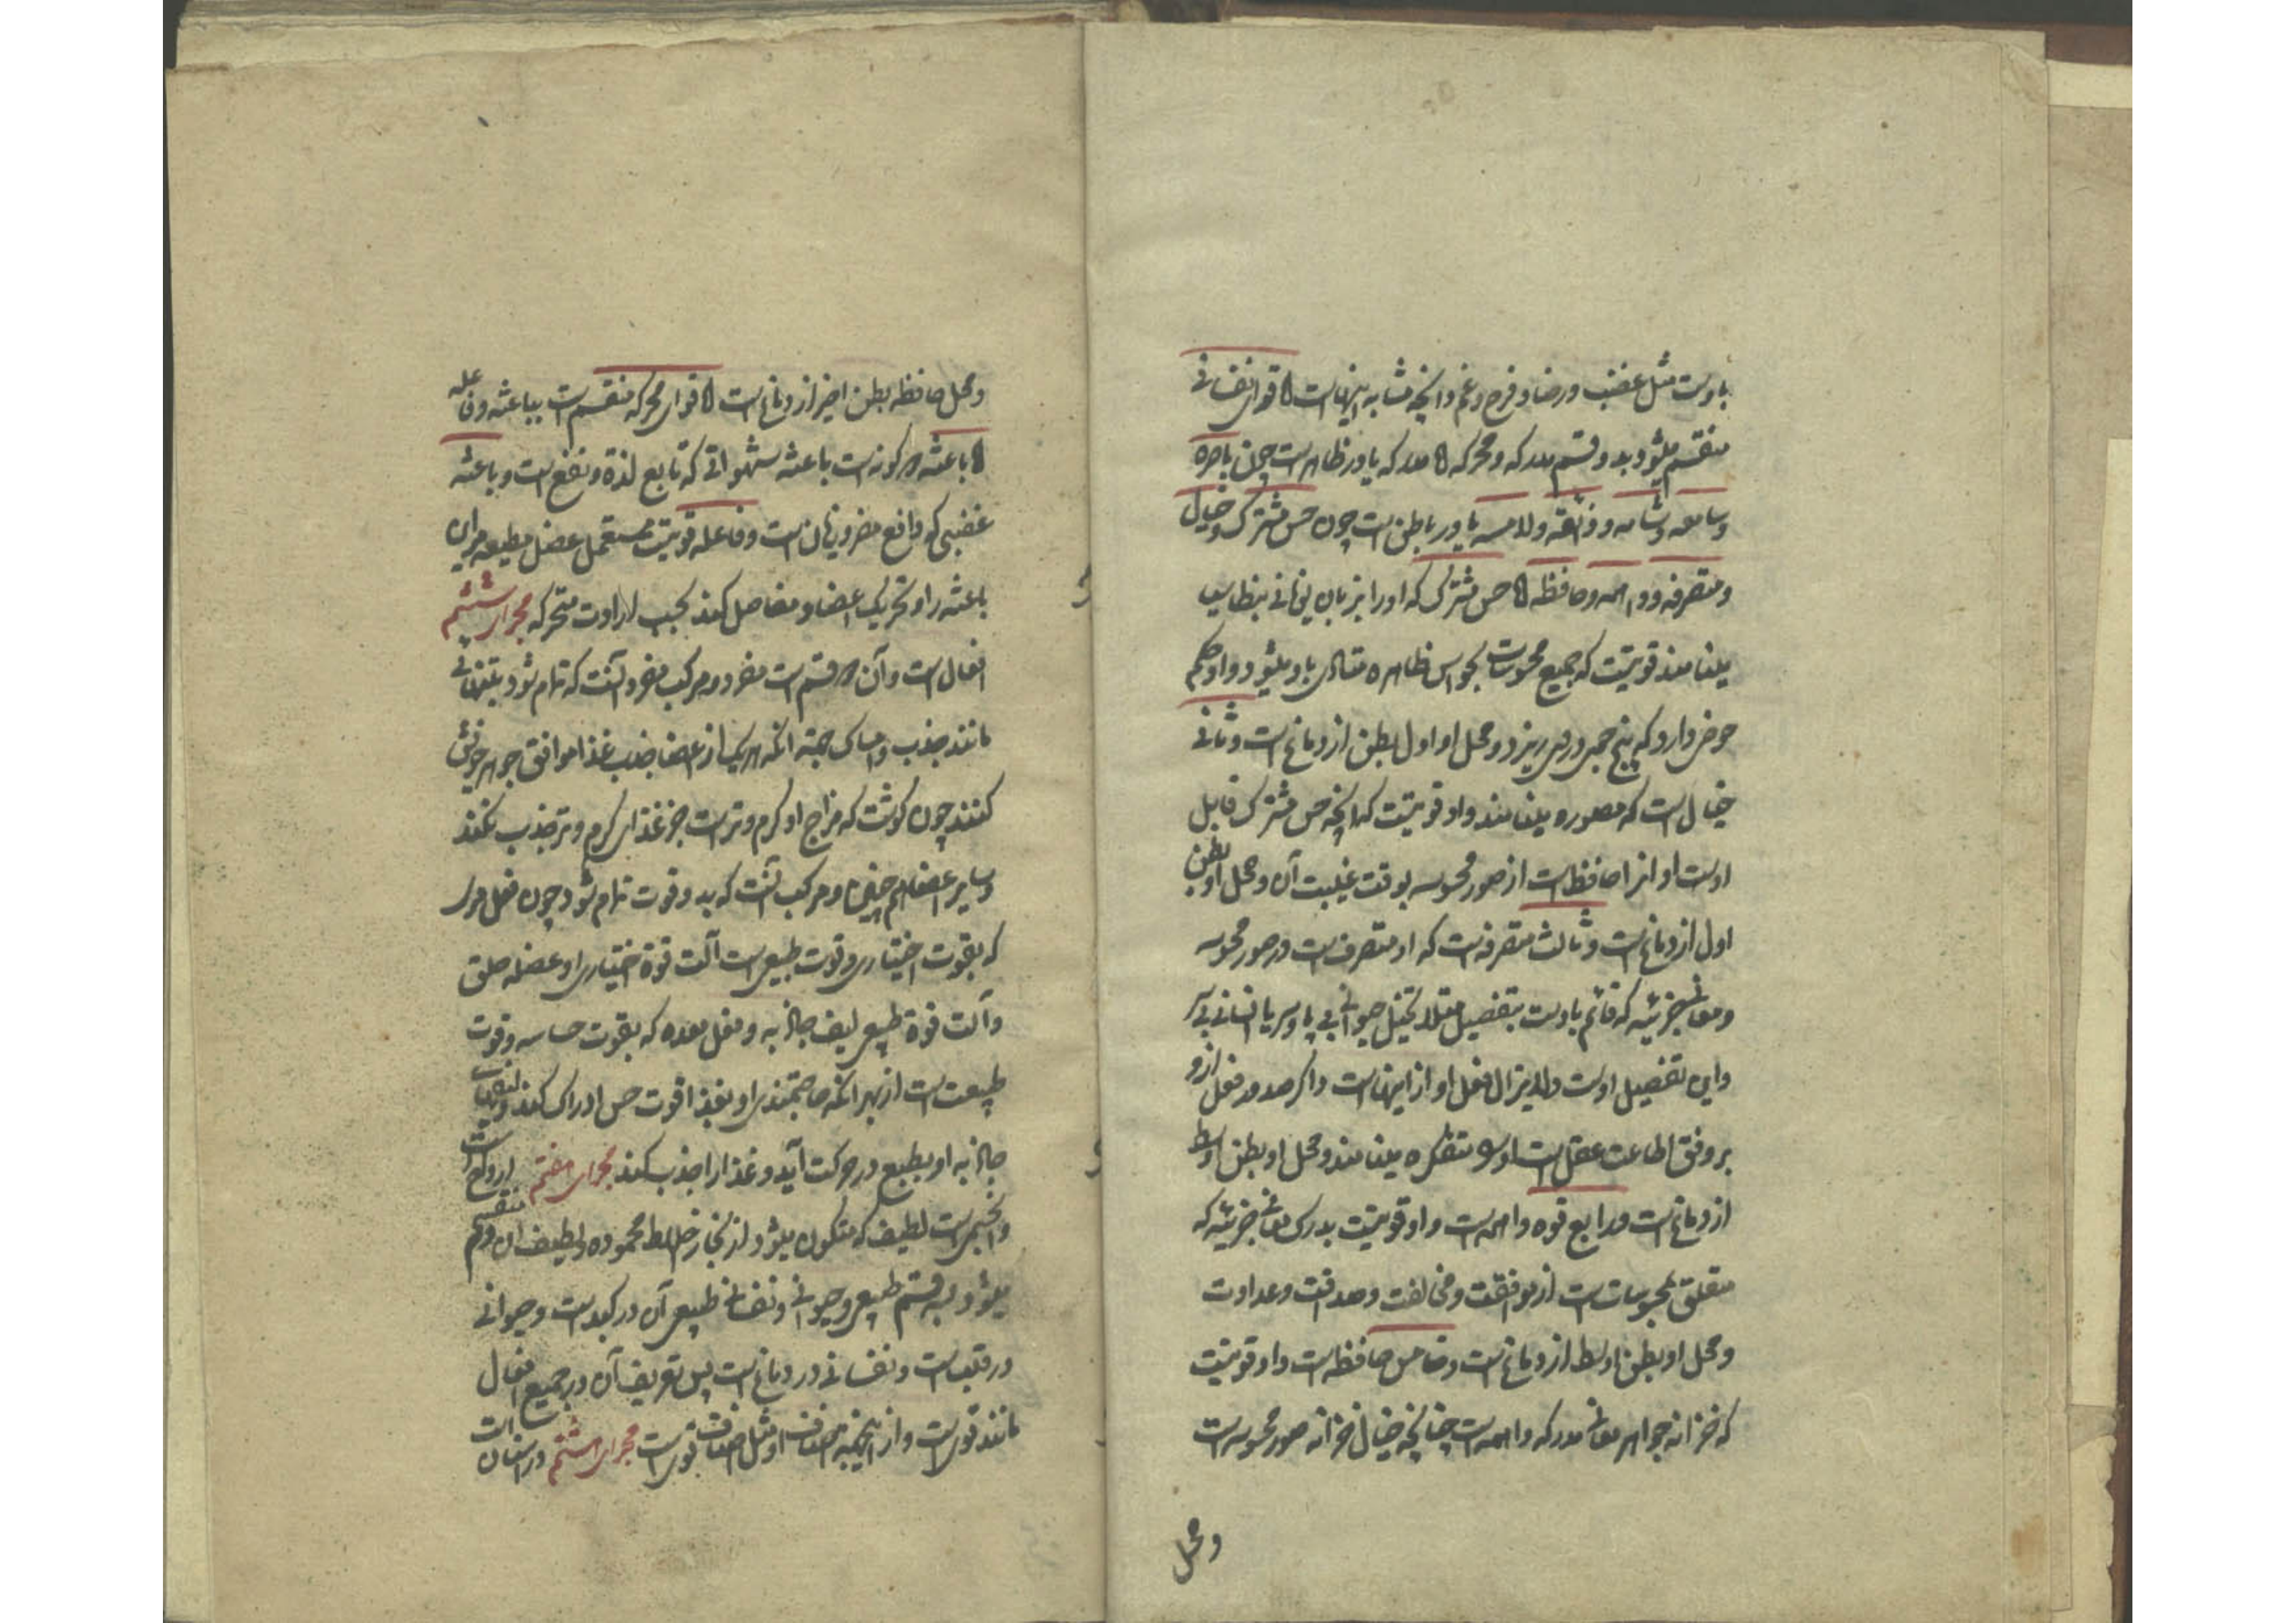 باوست مثل غضب و رضا و فرح و غم و انچه مشابه اینهاست اما قوای نفسانی
منقسم میشود بدو قسم مدرکه و محرکه اما مدرکه یا در ظاهرست چون باصره
و سامعه و شامه و ذائقه و لامسه یا در باطن است چون حس مشترک و خیال
و متصرفه و واهمه و حافظه اما حس مشترک که اورا بزبان یونانی بنطاسیا
مینامند قوتیست که جمیع محسوسات بحواس ظاهره متادی باو میشود و او حکم
حوض دارد که پنج جوی درو می ریزد و محل او اول بطن از دماغ است و ثانی
خیال است که مصوره مینامند و او قوتیست که انچه حس مشترک قابل
اوست او انرا حافظ است از صور محسوسه بوقت غیبت آن و محل او بطن
اول از دماغ است و ثالث متصرفه است که او متصرف است در صور محسوسه
و معانی جزئیه که قائم باوست بتفصیل مثلا تخیل حیوانی بی پا و سر یا انسانی بی سر
و این تفصیل اوست و لایزال فعل او از اینهاست و اگر صدور فعل ازو
بر وفق اطاعت عقل است او را متفکره مینامند و محل او بطن اوسط
از دماغ است و رابع قوه واهمه است و او قوتیست مدرک معانی جزئیه که
متعلق بمحسوسات است از موافقت و مخالفت و صداقت و عداوت
و محل او بطن اوسط از دماغ است و خامس حافظه است و او قوتیست
که خزانه جواهر معانی مدرکه واهمه است چنانچه خیال خزانه صور محسوسه است
و محل
و محل حافظه بطن اخیر از دماغ است اما قوای محرکه منقسم است بباعثه و فاعله
اما باعثه دو گونه است باعثه شهوانی که تابع لذة و نفع است و باعثه
غضبی که دافع مضر و زیان است و فاعله قوتیست مستعمل عضل مطیعه مرای
باعثه را و تحریک اعضا و مفاصل کند بحسب ارادت متحرکه مجرای ششم
افعال است و آن دو قسم است مفرد و مرکب مفرد آنست که تمام شود بتنهائی
مانند جذب و امساک جهة انکه هریک از اعضا جذب غذا موافق جوهر خویش
کنند چون گوشت که مزاج او گرم و تر است جز غذای گرم و تر جذب نکند
و سایر اعضا هم چنین و مرکب آنست که بدو قوت تمام شود چون فعل
که بقوت اختیاری و قوت طبیعی است آلت قوة اختیاری او عضله حلق
و آلت قوة طبیعی لیف جاذبه و فعل معده که بقوت حساسه و قوت
طبیعت است از بهر انکه حاجتمندی او بغذا قوت حس ادراک کند و لیف
جاذبه او بطبع در حرکت آید و غذا را جذب کند مجرای هفتم ارواح است
و ان جسمی است لطیف که متکون میشود از بخار اخلاط محموده و لطیف آن و منقسم
میشود بسه قسم طبیعی و حیوانی و نفسانی طبیعی آن در کبد است و حیوانی
در قلب است و نفسانی در دماغ است پس تعریف آن در جمیع افعال
مانند قوی است و از اینجهة اصناف او مثل اصناف قوی است مجرای هشتم در اسنان است